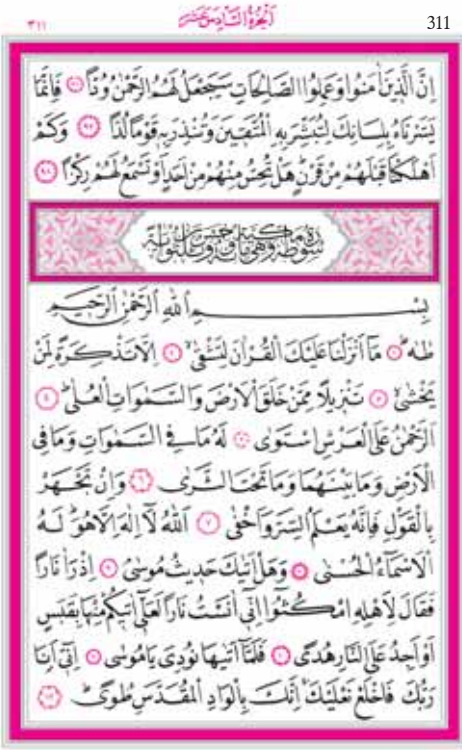 ٣١١ اَلْجُزْءُ السَّادِسَ عَشَرَ 311
اِنَّ الَّذٖينَ اٰمَنُوا وَعَمِلُوا الصَّالِحَاتِ سَيَجْعَلُ لَهُمُ الرَّحْمٰنُ وُدًّا ﴿٩٦﴾ فَاِنَّمَا
يَسَّرْنَاهُ بِلِسَانِكَ لِتُبَشِّرَ بِهِ الْمُتَّقٖينَ وَتُنْذِرَ بِهٖ قَوْمًا لُدًّا ﴿٩٧﴾ وَكَمْ
اَهْلَكْنَا قَبْلَهُمْ مِنْ قَرْنٍ هَلْ تُحِسُّ مِنْهُمْ مِنْ اَحَدٍ اَوْ تَسْمَعُ لَهُمْ رِكْزًا ﴿٩٨﴾
سُورَةُ طٰهٰ مَكِّيَّةٌ وَهِيَ مِائَةٌ وَخَمْسٌ وَثَلٰثُونَ اٰيَةً
بِسْمِ اللّٰهِ الرَّحْمٰنِ الرَّحٖيمِ
طٰهٰ ﴿١﴾ مَٓا اَنْزَلْنَا عَلَيْكَ الْقُرْاٰنَ لِتَشْقٰى ﴿٢﴾ اِلَّا تَذْكِرَةً لِمَنْ
يَخْشٰى ﴿٣﴾ تَنْزٖيلًا مِمَّنْ خَلَقَ الْاَرْضَ وَالسَّمٰوَاتِ الْعُلٰى ﴿٤﴾
اَلرَّحْمٰنُ عَلَى الْعَرْشِ اسْتَوٰى ﴿٥﴾ لَهُ مَا فِي السَّمٰوَاتِ وَمَا فِي
الْاَرْضِ وَمَا بَيْنَهُمَا وَمَا تَحْتَ الثَّرٰى ﴿٦﴾ وَاِنْ تَجْهَرْ
بِالْقَوْلِ فَاِنَّهُ يَعْلَمُ السِّرَّ وَاَخْفٰى ﴿٧﴾ اَللّٰهُ لَٓا اِلٰهَ اِلَّا هُوَ لَهُ
الْاَسْمَٓاءُ الْحُسْنٰى ﴿٨﴾ وَهَلْ اَتٰيكَ حَدٖيثُ مُوسٰى ﴿٩﴾ اِذْ رَاٰ نَارًا
فَقَالَ لِاَهْلِهِ امْكُثُٓوا اِنّٖٓي اٰنَسْتُ نَارًا لَعَلّٖٓي اٰتٖيكُمْ مِنْهَا بِقَبَسٍ
اَوْ اَجِدُ عَلَى النَّارِ هُدًى ﴿١٠﴾ فَلَمَّٓا اَتٰيهَا نُودِيَ يَا مُوسٰى ﴿١١﴾ اِنّٖٓي اَنَا
رَبُّكَ فَاخْلَعْ نَعْلَيْكَ اِنَّكَ بِالْوَادِ الْمُقَدَّسِ طُوًى ﴿١٢﴾